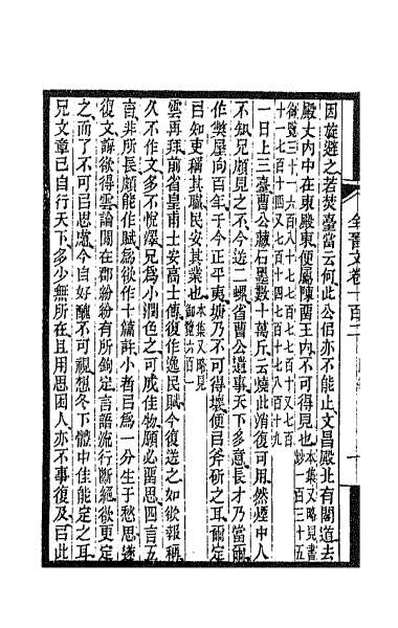 因旋避之若焚臺當云何此公侶亦不能止文昌殿北有閣道去
殿丈內中在東殿東便屬陳留王內不可得見也本集又略見書鈔一百三十五
御覽三十一六百八十七七百十又七百
十一七百十四又七百十四七百十七八百十九
一日上三臺曹公藏石墨數十萬斤云燒此消復可用然煙中人
不知兄頗見之不今送二螺省曹公遺事天下多意長才乃當爾
作獘屋向百年于今正平夷塘乃不可得壞便㠯斧斫之耳爾定
㠯知吏稱其職民安其業也本集又略見御覽六百一
雲再拜前省皇甫士安高士傳復作逸民賦今復送之如欲報稱
久不作文多不悅澤兄爲小潤色之可成佳物願必留思四言五
言非所長頗能作賦爲欲作十篇許小者㠯爲一分生于愁思遂
復文誨欲得雲論間在郡紛紛有所鉤定言語流行斷絕欲更定
之而了不可㠯思慮今自好醜不可視想冬下體中佳能定之耳
兄文章已自行天下多少無所在且用思困人亦不事復及㠯此
全晉文卷一百二
十